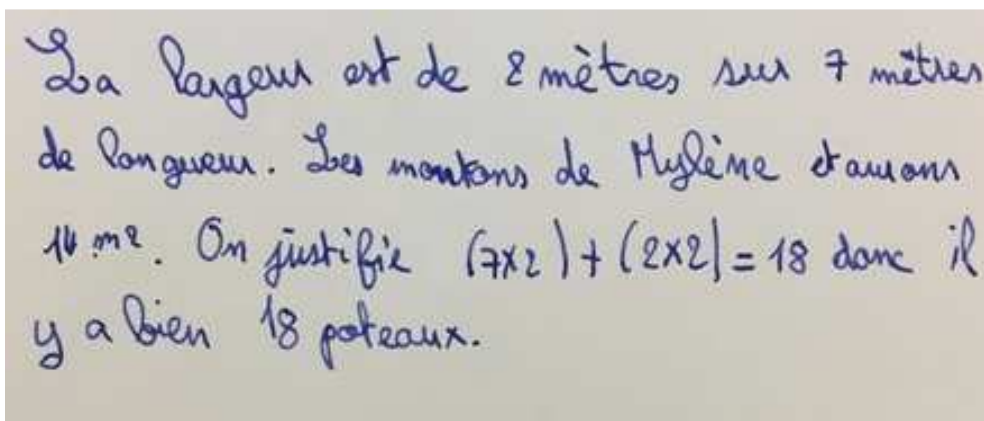 La largeur est de 2 mètres sur 7 mètres
de longueur. Les moutons de Mylène et aurons
14 m². On justifie (7x2)+(2x2)=18 donc il
y a bien 18 poteaux.